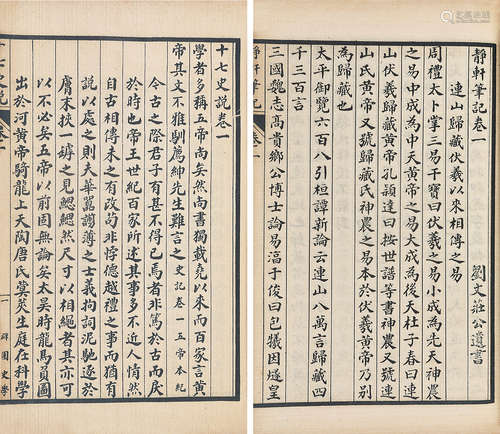 靜軒筆記卷一
劉文莊公遺書
連山歸藏伏羲以來相傳之易
周禮太卜掌三易干寶曰伏羲之易小成為先天神農
之易中成為中天黃帝之易大成為後天杜子春曰連
山伏羲歸藏黃帝孔穎達曰按世譜等書神農又號連
山氏黃帝又號歸藏氏神農之易本於伏羲黃帝乃別
為歸藏也
太平御覽六百八引桓譚新論云連山八萬言歸藏四
千三百言
三國魏志高貴鄉公博士論易湻于俊曰包犧因燧皇
靜軒筆記
卷一
十七史說卷一
學者多稱五帝尚矣然尚書獨載堯以來而百家言黃
帝其文不雅馴薦紳先生難言之史記卷一五帝本紀
今古之際君子有甚不得已焉者非篤於古而戾
於時也帝王世紀百家所述其事多不近人情然
自古相傳未之有改苟非悖德越禮之事而猶有
說以處之則夫華嚣謭薄之士義拘詞泥馳逐於
膚末挾一之見鰓鰓然尺寸以相繩者其亦可
以不必矣五帝以前固無論矣太昊時龍馬負圖
出於河黃帝騎龍上天陶唐氏蓂莢生庭在科學
十七史說
卷一
一
園史學